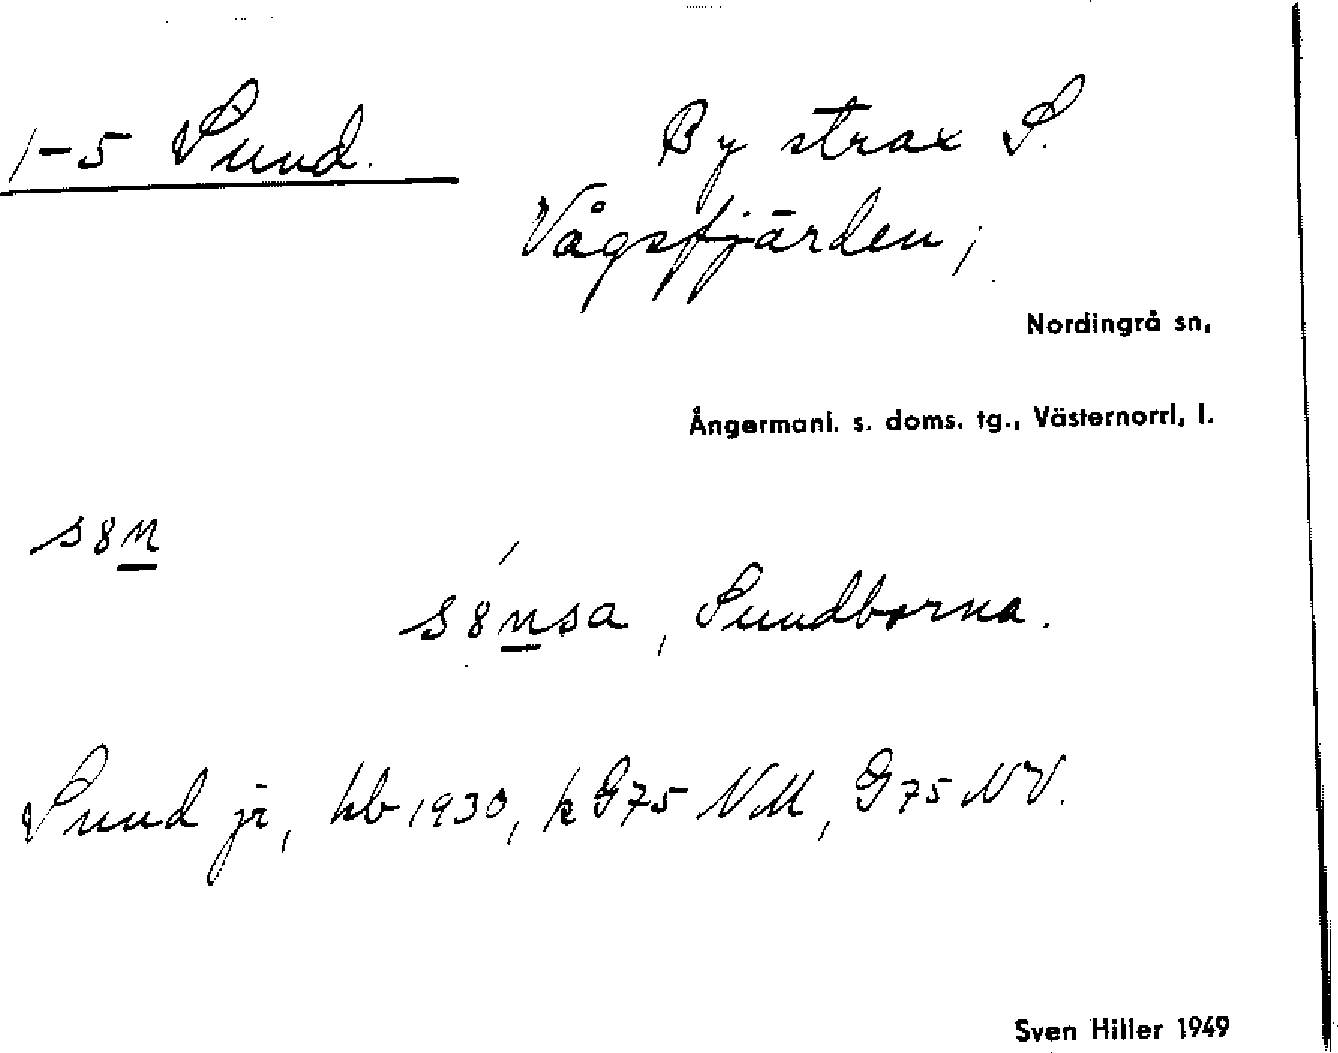 1-5 Sund.
By strax S.
Vågsfjärden,
Nordingrå sn,
Ångermanl. s. doms. tg., Västernorrl, l.
s8n
s8nsa, Sundborna.
Sund jr, hb 1930, k G75 NM, G75 NV.
Sven Hiller 1949